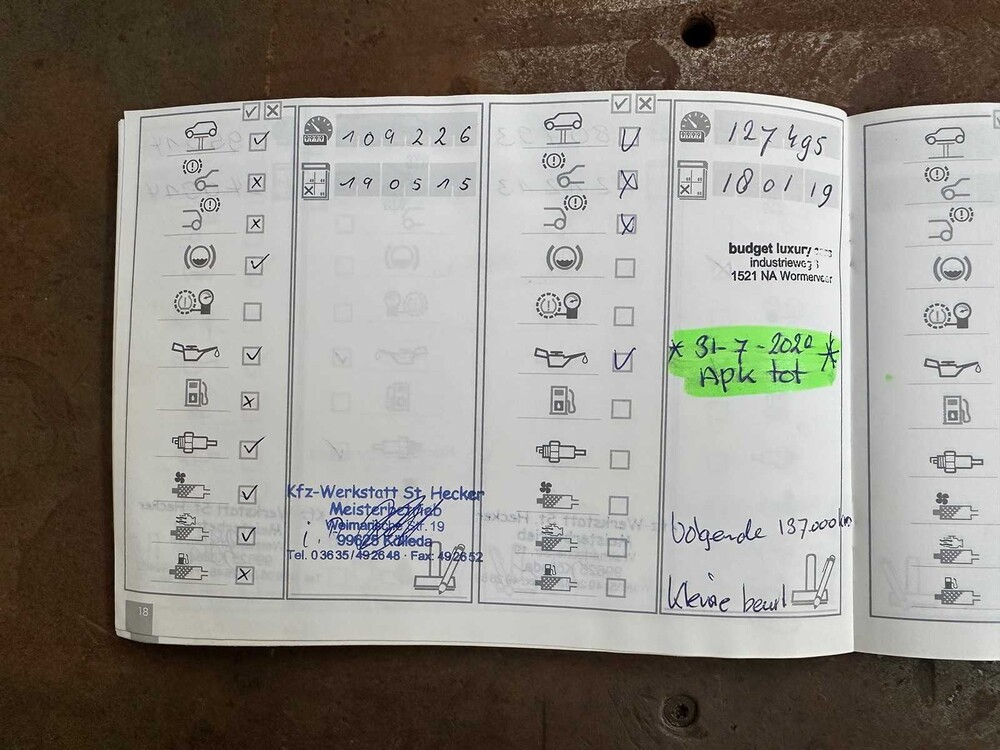 109226
190515
Kfz-Werkstatt St. Hecker
Meisterbetrieb
Weimarische Str. 19
99625 Kölleda
Tel. 03635/492648 · Fax: 492652
18
127495
180119
budget luxury cars
industrieweg
1521 NA Wormerveer
* 31-7-2020 *
Apk tot
Volgende 137.000 km
Kleine beurt